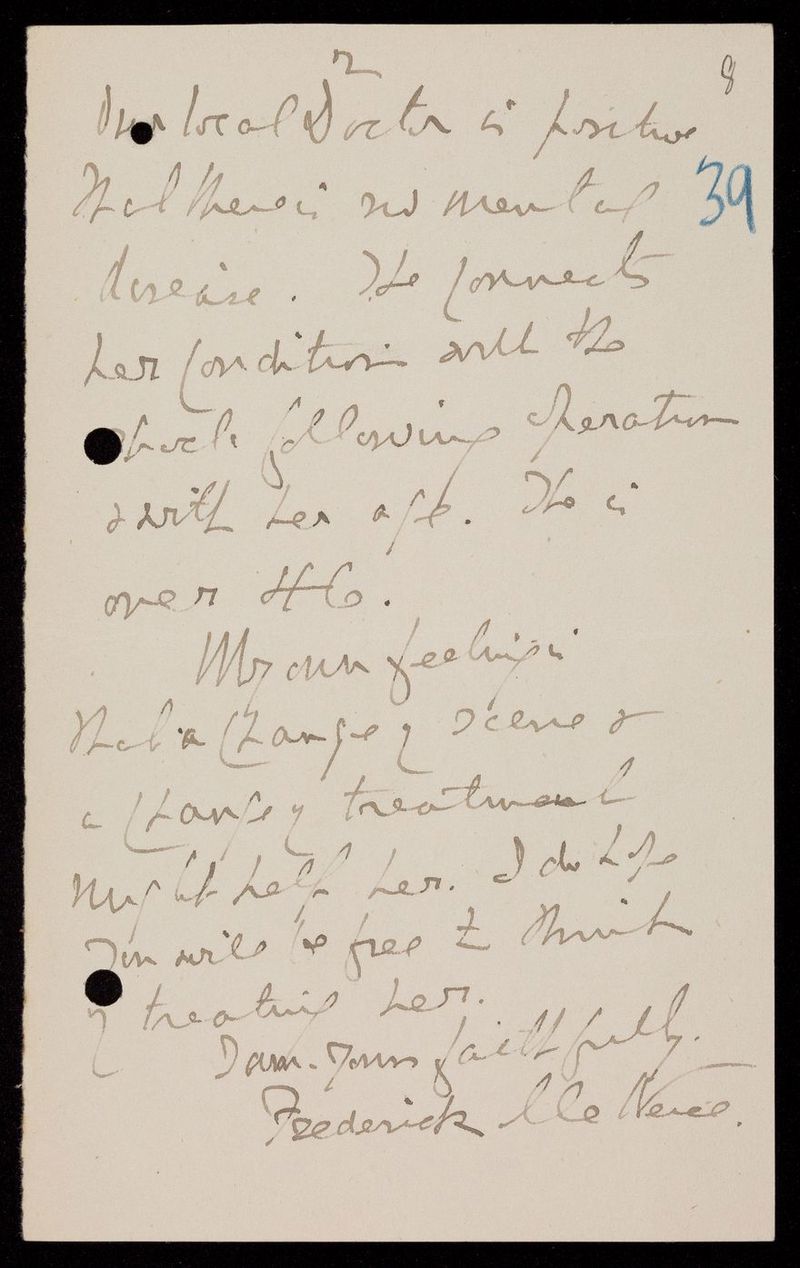 2
8
Our local Doctor is positive
that there is no mental
39
disease. He connects
her condition with the
shock following operation
& with her age. She is
over 46.
My own feeling is
that a change of scene &
a change of treatment
might help her. I do hope
you will be free to think
of treating her.
I am. Yours faithfully.
Frederick